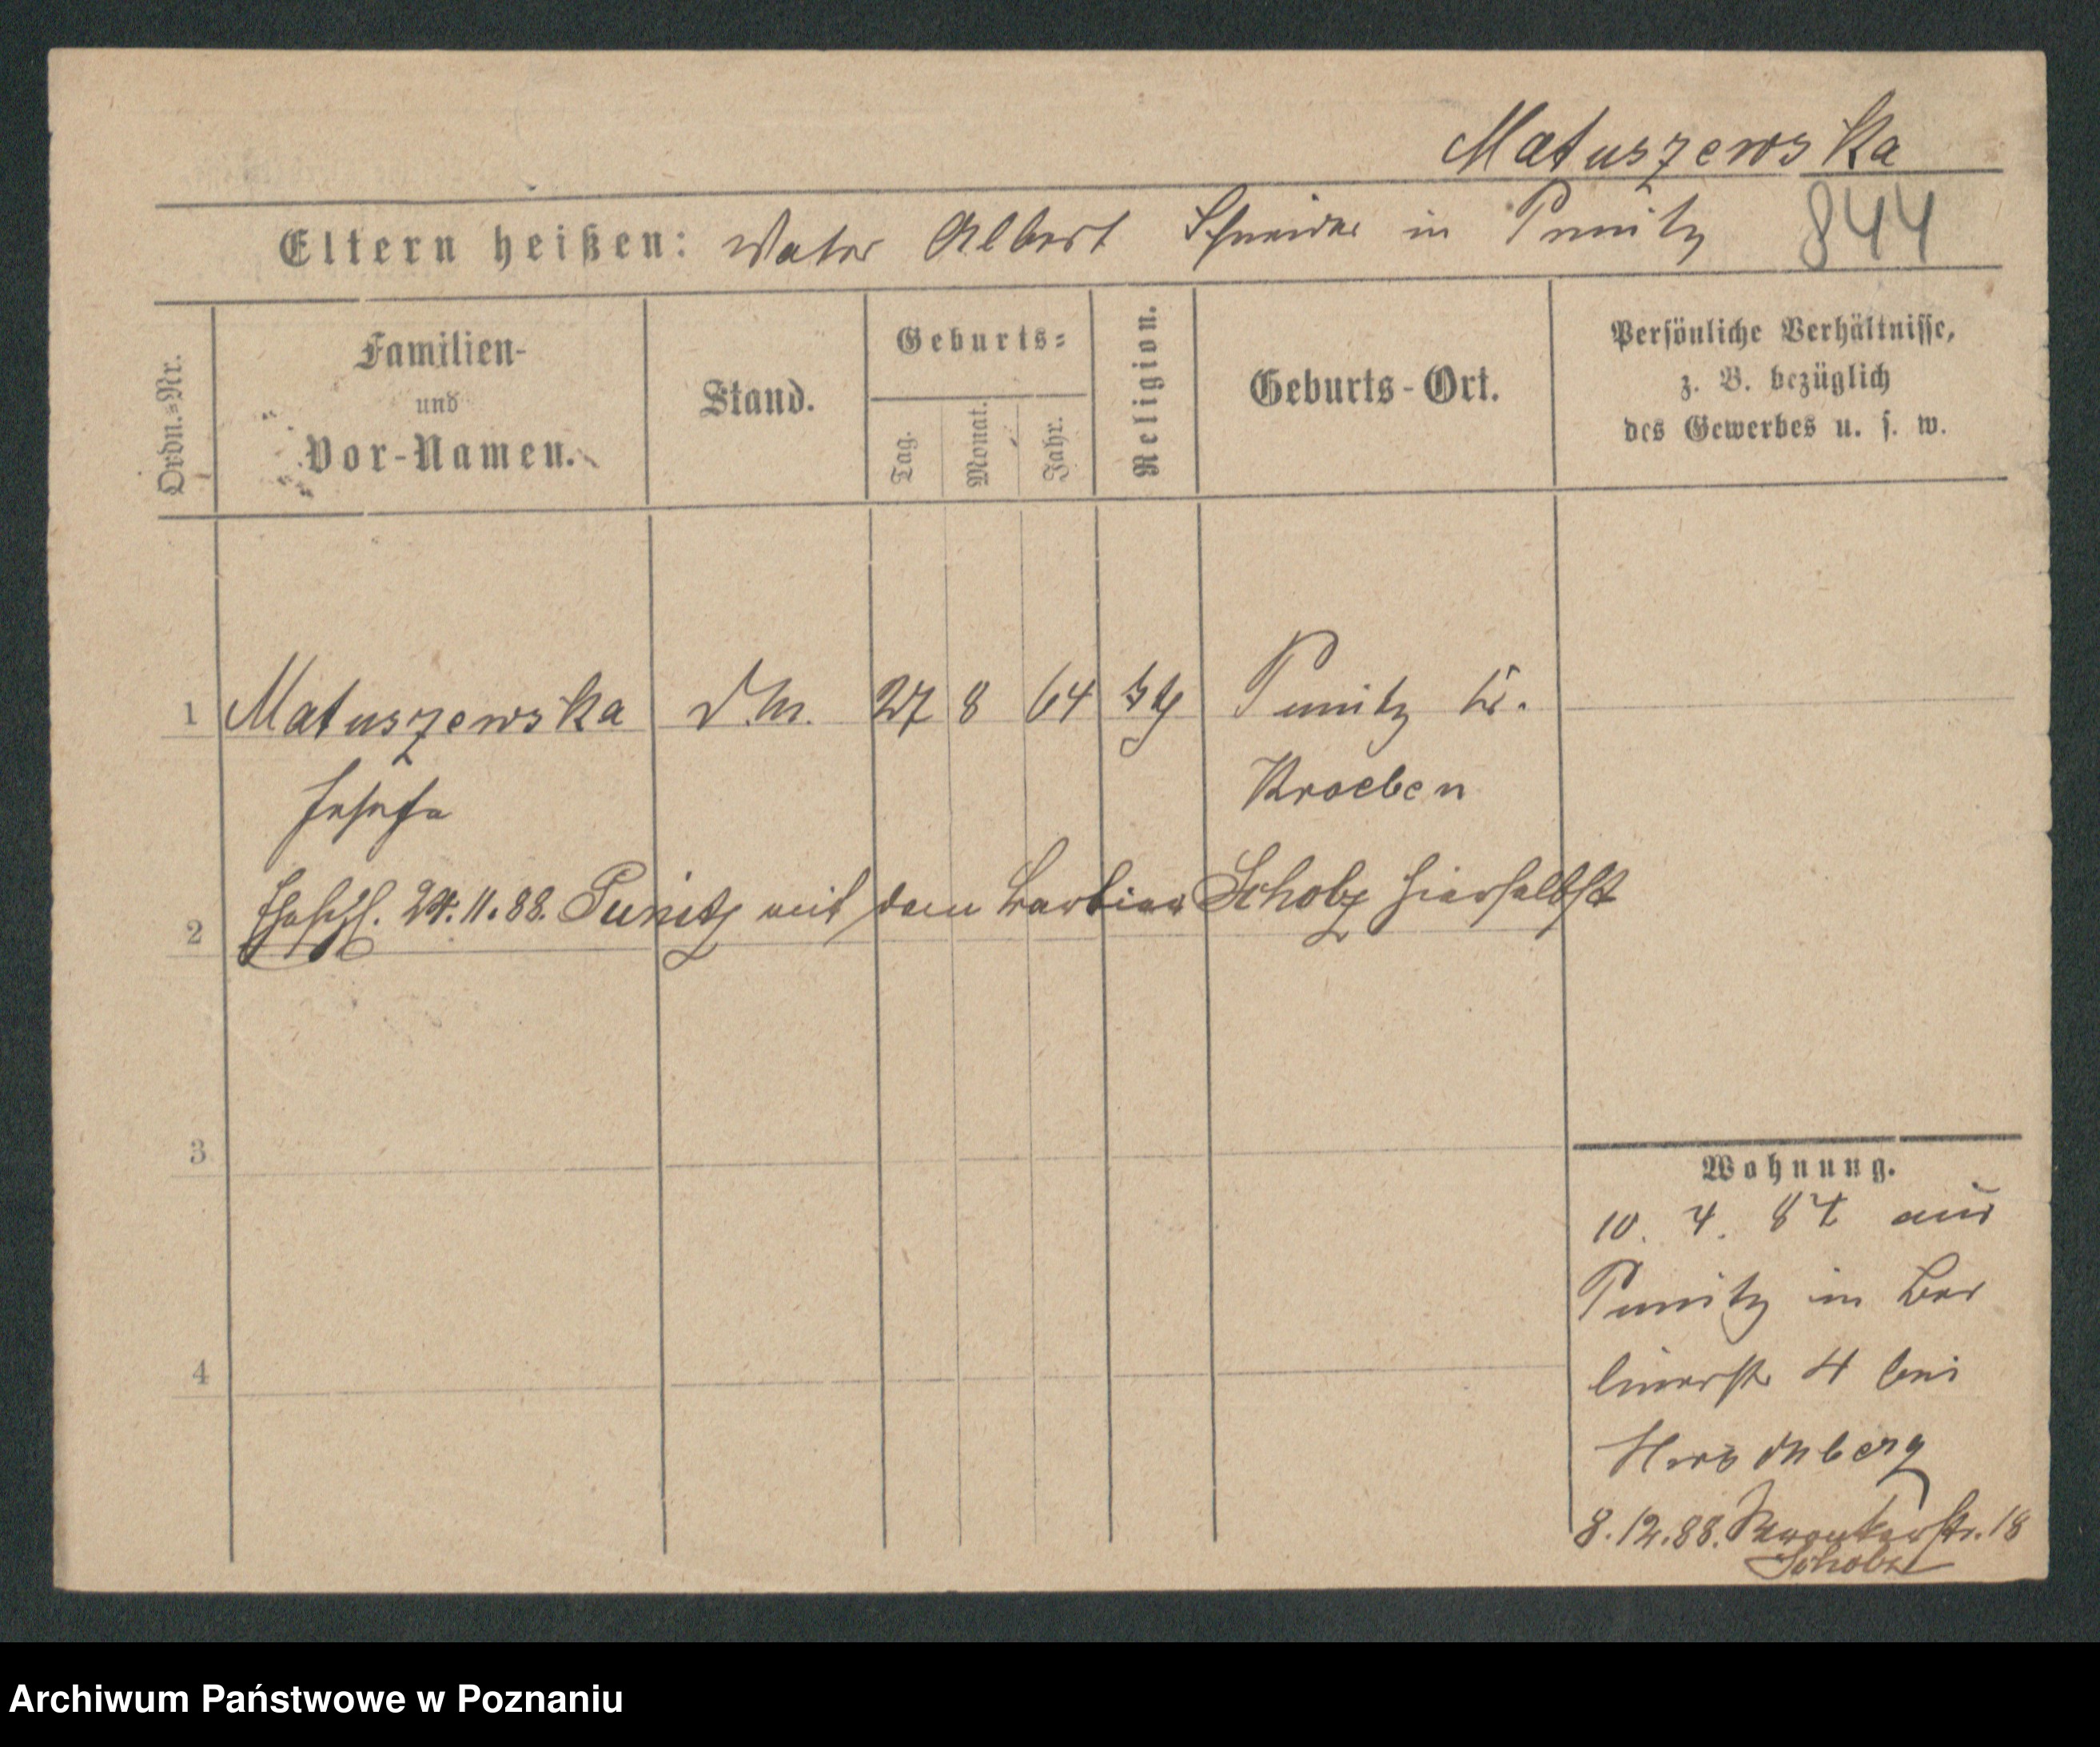 Matuszewska
Eltern heißen: Vater Albert Schneider in Punitz 844
Ordn.-Nr.
Familien-
und
Vor-Namen.
Stand.
Geburts-
Tag.
Monat.
Jahr.
Religion.
Geburts-Ort.
Persönliche Verhältnisse,
z. B. bezüglich
des Gewerbes u. s. w.
1 Matuszewska D.M. 27 8 64 Punitz Kr.
Josefa Kroeben
2 Eheschl. 11.88. Punitz mit dem Barbier Scholz hierselbst
3
4
Wohnung.
10. 4. 87 aus
Punitz in Ber
linerstr 4 bei
8.12.88. 18
Scholz
Archiwum Państwowe w Poznaniu